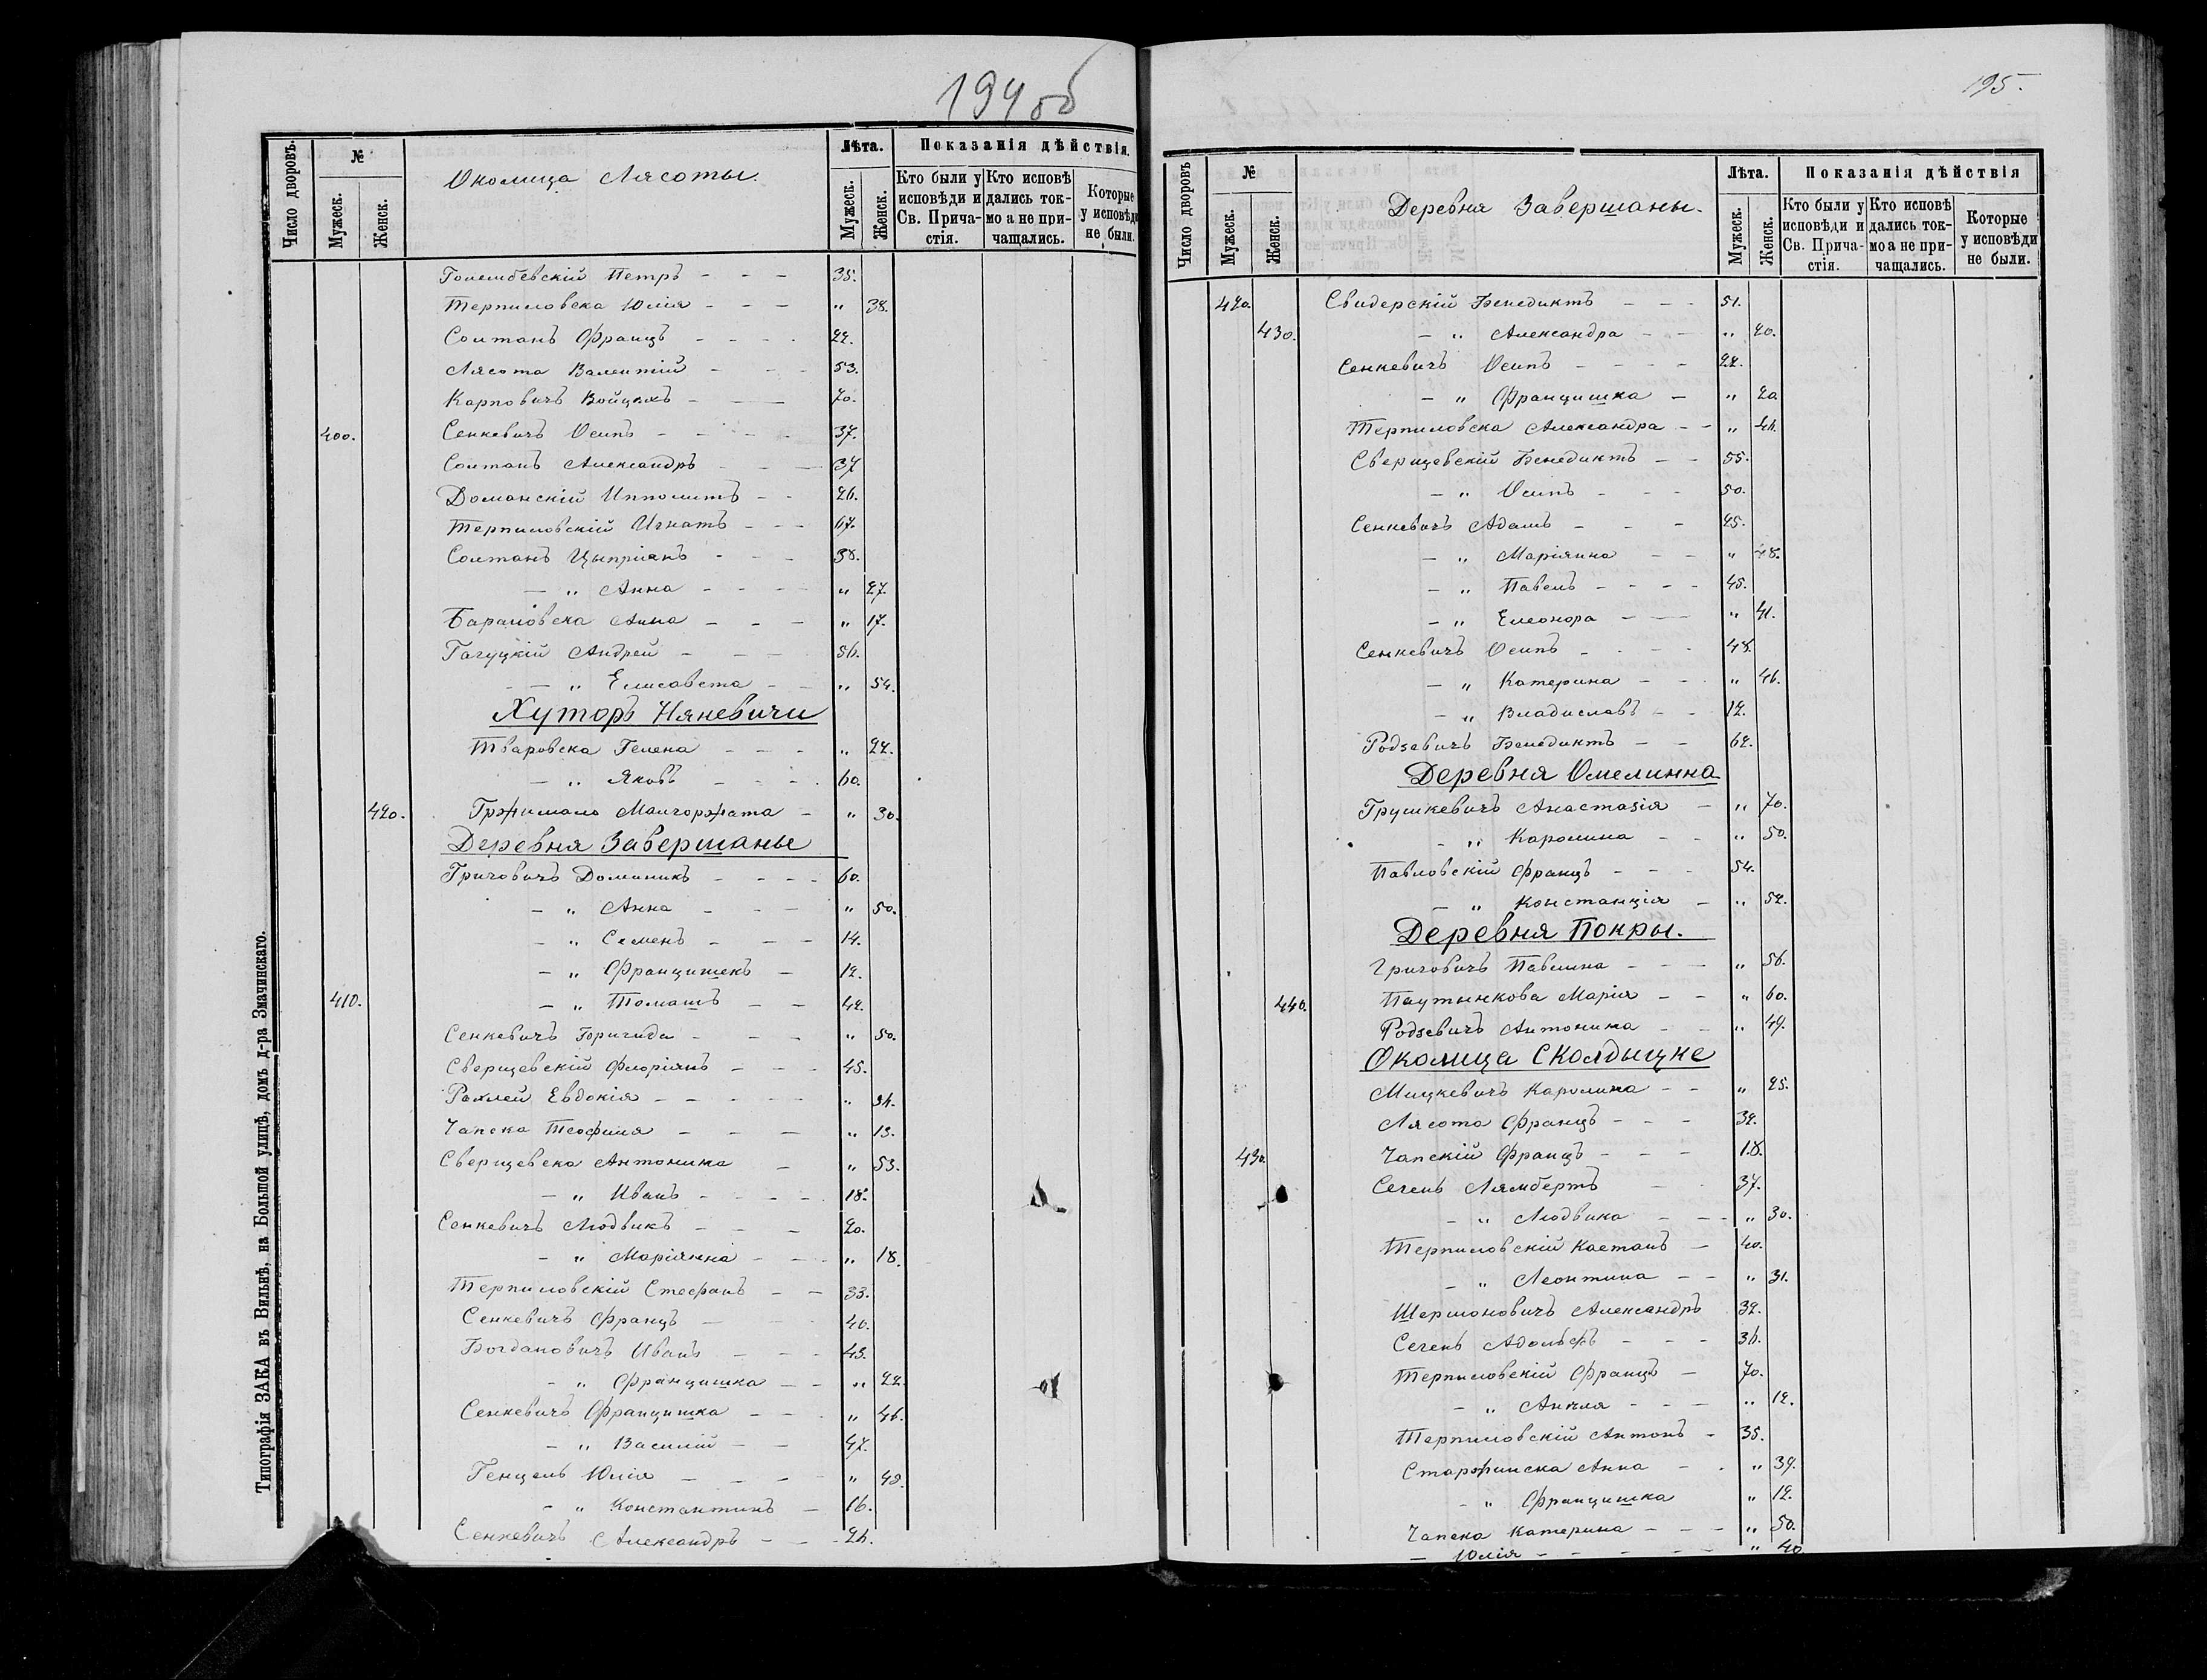 194 об
Число дворовъ.
№
Мужеск.
Женск.
Околица Лясоты.
Лѣта.
Мужеск.
Женск.
Показанія дѣйствія.
Кто были у исповѣди и Св. Причастія.
Кто исповѣдались токмо а не причащались.
Которые у исповѣди не были.
Голембевскій Петръ - - - 35.
Терпиловска Юлія - - - " 38.
Солтанъ Францъ - - - - 22.
Лясота Валентій - - - 53.
Карповичъ Войцехъ - - - 70.
400. Сенкевичъ Осипъ - - - - 37.
Солтанъ Александръ - - - 37
Доманскій Ипполитъ - - 26.
Терпиловскій Игнатъ - - - 67.
Солтанъ Цыпріанъ - - - 38.
- " Анна - - - - " 27.
Барановска Анна - - - " 17.
Гагуцкій Андрей - - - 56.
- " Елисавета - - " 54.
Хуторъ Няневичи
Тваровска Гелена - - - " 22.
- " Яковъ - - - 60.
420. Гржималo Малгоржата - " 30.
Деревня Завершанье
Григовичъ Доминикъ - - - - 60.
- " Анна - - - " 50.
- " Семенъ - - - 14.
- " Францишекъ - 12.
410. - " Томашъ - - 42.
Сенкевичъ Бригида - - - " 50.
Сверщевскій Флоріянъ - - - 45.
Рахлей Евдокія - - - - - " 34.
Чапска Теофиля - - - " 13.
Сверщевска Антонина - " 53.
- " Иванъ - - - - 18.
Сенкевичъ Людвикъ - - - 20.
- " Маріянна - - - " 18.
Терпиловскій Стефанъ - - 33.
Сенкевичъ Францъ - - - 40.
Богдановичъ Иванъ - - - 43.
- " Францишка - - " 22.
Сенкевичъ Францишка - - - " 46.
- " Василій - - 47.
Генцель Юлія - - - - " 48.
- " Константинъ - 16.
Сенкевичъ Александръ - - - 24.
Типографія ЗАКА въ Вильнѣ, на Большой улицѣ, домъ д-ра Змачинскаго.
195.
Число дворовъ
№
Мужеск.
Женск.
Деревня Завершаны.
Лѣта.
Мужеск.
Женск.
Показанія дѣйствія
Кто были у исповѣди и Св. Причастія.
Кто исповѣдались токмо а не причащались.
Которые у исповѣди не были.
420. Свидерскій Бенедиктъ - - - 51.
430. - " Александра - - " 20.
Сенкевичъ Осипъ - - - - 22.
- " Францишка - " 20
Терпиловска Александра - - " 44.
Сверщевскій Бенедиктъ - - 55.
- " Осипъ - - - 50.
Сенкевичъ Адамъ - - - 25.
- " Маріянна - - " 48.
- " Павелъ - - - - 45.
- " Елеонора - - " 41.
Сенкевичъ Осипъ - - - - 48.
- " Катерина - - " 46.
- " Владиславъ - - 12.
Родзевичъ Бенедиктъ - - 62.
Деревня Омелинна
Грушкевичъ Анастазія - " 70.
- " Каролина - - " 50.
Павловскій Францъ - - - 54.
- " Констанція - " 52.
Деревня Покры.
Григовичъ Павлина - - - " 56.
440. Паутынкова Марія - - " 60.
Родзевичъ Антонина - - " 49.
Околица Сколдыцке
Мицкевичъ Каролина - - " 25.
Лясота Францъ - - - 32.
430. Чапскій Францъ - - - 18.
Сечень Лямбертъ - - 37.
- " Людвика - - - " 30.
Терпиловскій Каетанъ - 40.
- " Леонтина - - " 31.
Шермоновичъ Александръ 32.
Сечень Адольфъ - - - 36.
Терпиловскій Францъ - 70.
- " Анеля - - - " 12.
Терпиловскій Антонъ - 35.
Старжинска Анна - - " 39.
- " Францишка " 12.
Чапска Катерина - - - " 50.
- Юлія - - - - - " 40